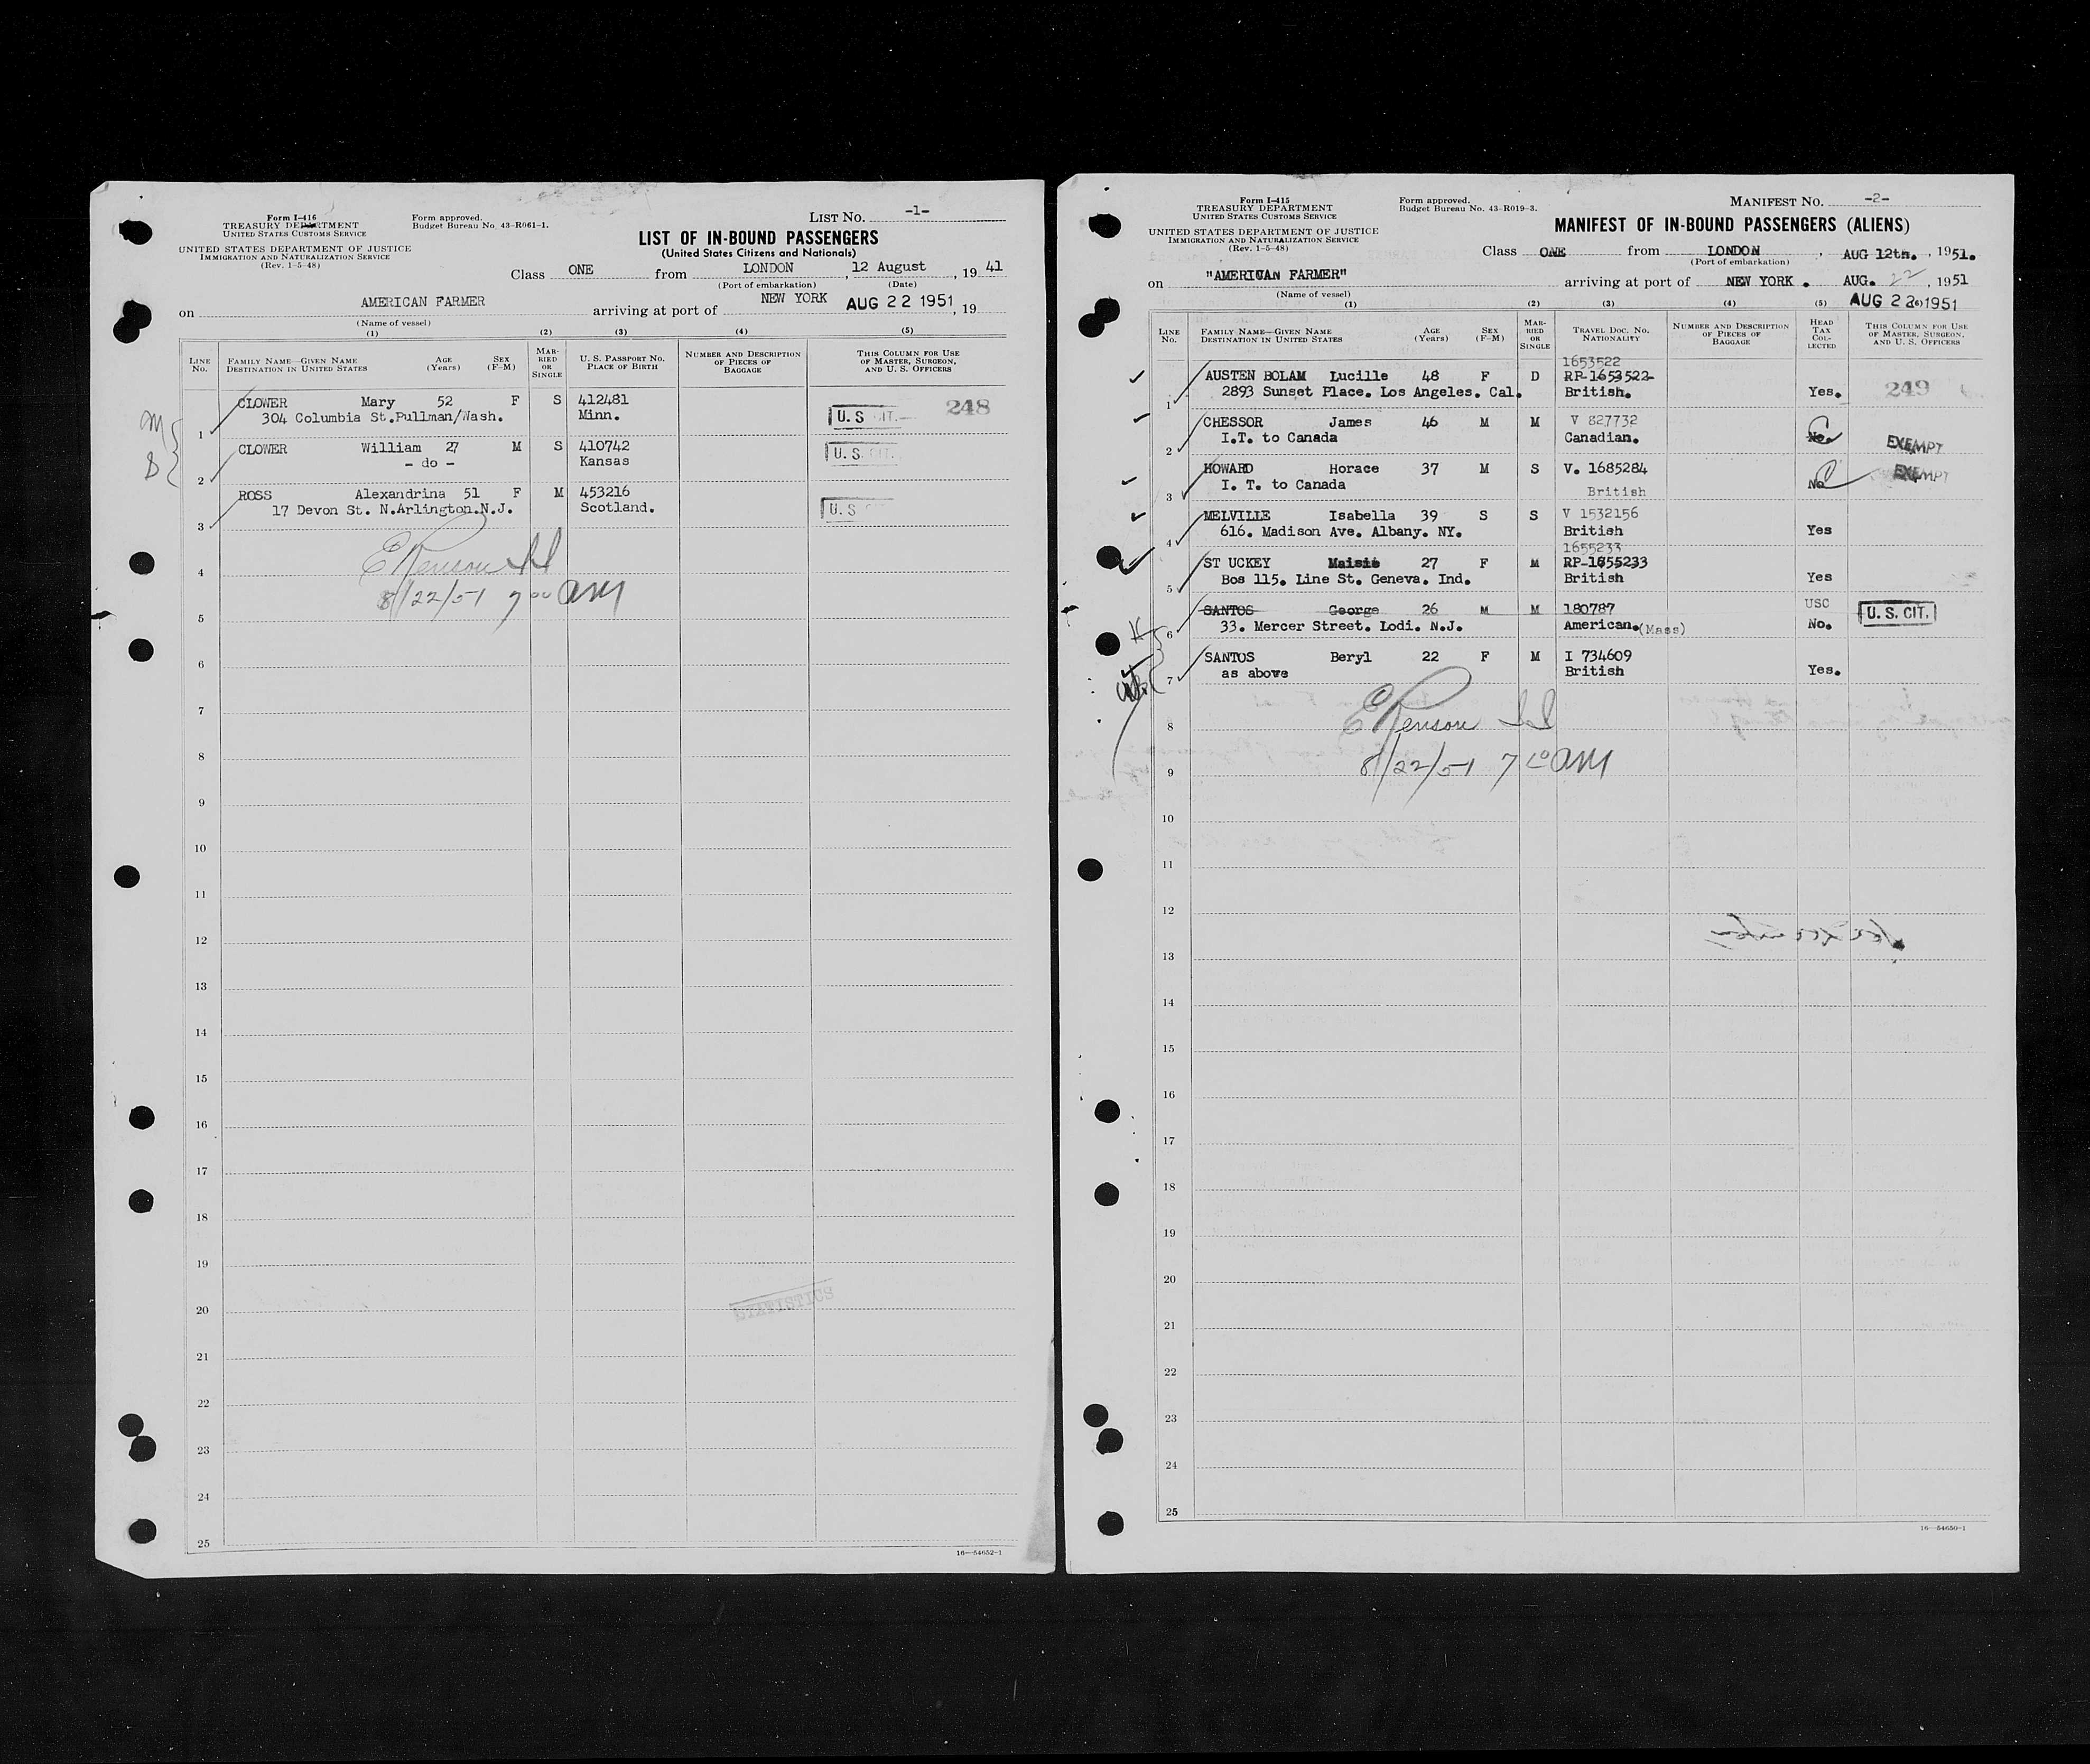 Form I-416
TREASURY DEPARTMENT
UNITED STATES CUSTOMS SERVICE
UNITED STATES DEPARTMENT OF JUSTICE
IMMIGRATION AND NATURALIZATION SERVICE
(Rev. 1-5-48)
Form approved.
Budget Bureau No. 43-R061-1.
LIST NO. -1-
LIST OF IN-BOUND PASSENGERS
(United States Citizens and Nationals)
Class ONE from LONDON, 12 August, 1941
(Port of embarkation) (Date)
on AMERICAN FARMER arriving at port of NEW YORK AUG 22 1951, 19
(Name of vessel)
(1) (2) (3) (4) (5)
LINE NO. FAMILY NAME—GIVEN NAME DESTINATION IN UNITED STATES AGE (Years) SEX (F-M) MARRIED OR SINGLE U. S. PASSPORT NO. PLACE OF BIRTH NUMBER AND DESCRIPTION OF PIECES OF BAGGAGE THIS COLUMN FOR USE OF MASTER, SURGEON, AND U. S. OFFICERS
CLOWER Mary 52 F S 412481 248
1 304 Columbia St.Pullman/Wash. Minn. U. S CIT.
M
B
CLOWER William 27 M S 410742 U. S. CIT.
2 - do - Kansas
ROSS Alexandrina 51 F M 453216
3 17 Devon St. N.Arlington.N.J. Scotland. U. S
4
8/22/51 7 00 AM
5
6
7
8
9
10
11
12
13
14
15
16
17
18
19
20 STATISTICS
21
22
23
24
25
16—54652-1
Form I-415
TREASURY DEPARTMENT
UNITED STATES CUSTOMS SERVICE
UNITED STATES DEPARTMENT OF JUSTICE
IMMIGRATION AND NATURALIZATION SERVICE
(Rev. 1-5-48)
Form approved.
Budget Bureau No. 43-R019-3.
MANIFEST NO. -2-
MANIFEST OF IN-BOUND PASSENGERS (ALIENS)
Class ONE from LONDON, AUG 12th., 1951.
(Port of embarkation)
on "AMERICAN FARMER" arriving at port of NEW YORK. AUG. 22, 1951
(Name of vessel) AUG 22 1951
(1) (2) (3) (4) (5) (6)
LINE NO. FAMILY NAME—GIVEN NAME DESTINATION IN UNITED STATES AGE (Years) SEX (F-M) MARRIED OR SINGLE TRAVEL DOC. NO. NATIONALITY NUMBER AND DESCRIPTION OF PIECES OF BAGGAGE HEAD TAX COLLECTED THIS COLUMN FOR USE OF MASTER, SURGEON, AND U. S. OFFICERS
1653522
AUSTEN BOLAM Lucille 48 F D RP-1653522-
1 2893 Sunset Place. Los Angeles. Cal. British. Yes. 249
CHESSOR James 46 M M V 827732
2 I.T. to Canada Canadian. No. EXEMPT
HOWARD Horace 37 M S V. 1685284 EXEMPT
3 I. T. to Canada British No
MELVILLE Isabella 39 S S V 1532156
4 616. Madison Ave. Albany. NY. British Yes
1655233
ST UCKEY Maisie 27 F M RP-1655233
5 Bos 115. Line St. Geneva. Ind. British Yes
SANTOS George 26 M M 180787 USC U. S. CIT.
6 33. Mercer Street. Lodi. N.J. American.(Mass) No.
SANTOS Beryl 22 F M I 734609
7 as above British Yes.
8
8/22/51 7 00 AM
9
10
11
12
13
14
15
16
17
18
19
20
21
22
23
24
25
16—54650-1